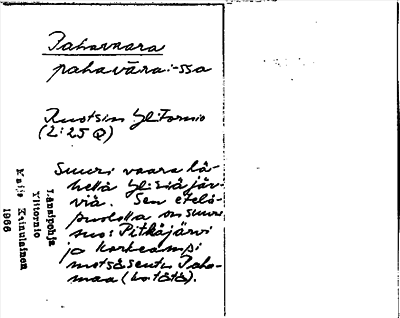 Pahavaara
pahavāra: -ssa
Ruotsin Yli-Tornio
(2:25 Q)
Suuri vaara lä-
hellä Ylistä jär-
viä. Sen etelä-
puolella on suuri
suo: Pitkäjärvi
ja korkeampi
metsäseutu Paha-
maa (ks. tätä).
Länsipohja
Ylitornio
Maija Kainulainen
1966